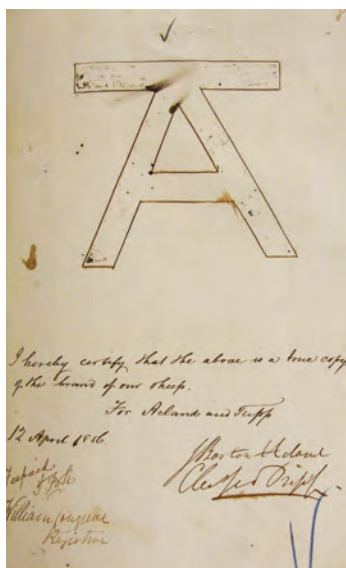 A
I hereby certify that the above is a true copy
of the brand of our sheep.
For Acland and Tripp
12 April 1856
J Barton Acland
Charles Tripp
William
Registrar